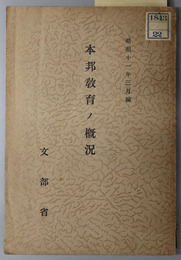 昭和十一年三月編
本邦教育ノ概況
文部省
1843
22